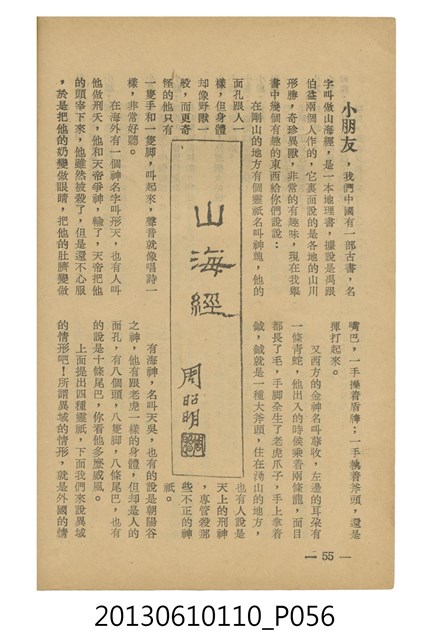 小朋友，我們中國有一部古書，名
字叫做山海經，是一本地理書，據說是禹跟
伯益兩個人作的，它裏面說的是各地的山川
形勝，奇珍異獸，非常的有趣味，現在我舉
書中幾個有趣的東西給你們說說：
在剛山的地方有個靈祇名叫神䰠，他的
面孔跟人一
樣，但身體
却像野獸一
般，而更奇
怪的他只有
一隻手和一隻脚，叫起來，聲音就像唱詩一
樣，非常好聽。
在海外有一個神名字叫形天，也有人叫
他做刑天，他和天帝爭神，輸了，天帝把他
的頭宰下來，他雖然被殺了，但是還不心服
，於是把他的奶變做眼睛，把他的肚臍變做
山海經
周昭明
嘴巴，一手操着盾牌；一手執着斧頭，還是
揮打起來。
又西方的金神名叫蓐收，左邊的耳朶有
一條青蛇，他出入的時候乘着兩條龍，面目
都長了毛，手脚全生了老虎爪子，手上拿着
鉞，鉞就是一種大斧頭，住在泑山的地方，
也有人說是
天上的刑神
，專管殺那
些不正的神
祇。
有海神，名叫天吳，也有的說是朝陽谷
之神，他有跟老虎一樣的身體，但却是人的
面孔，有八個頭，八隻脚，八條尾巴，也有
的說是十條尾巴，你看他多麼威風。
上面提出四種靈祇，下面我們來說異域
的情形吧！所謂異域的情形，就是外國的情
— 55 —
20130610110_P056